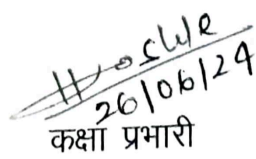 26/06/24
कक्षा प्रभारी